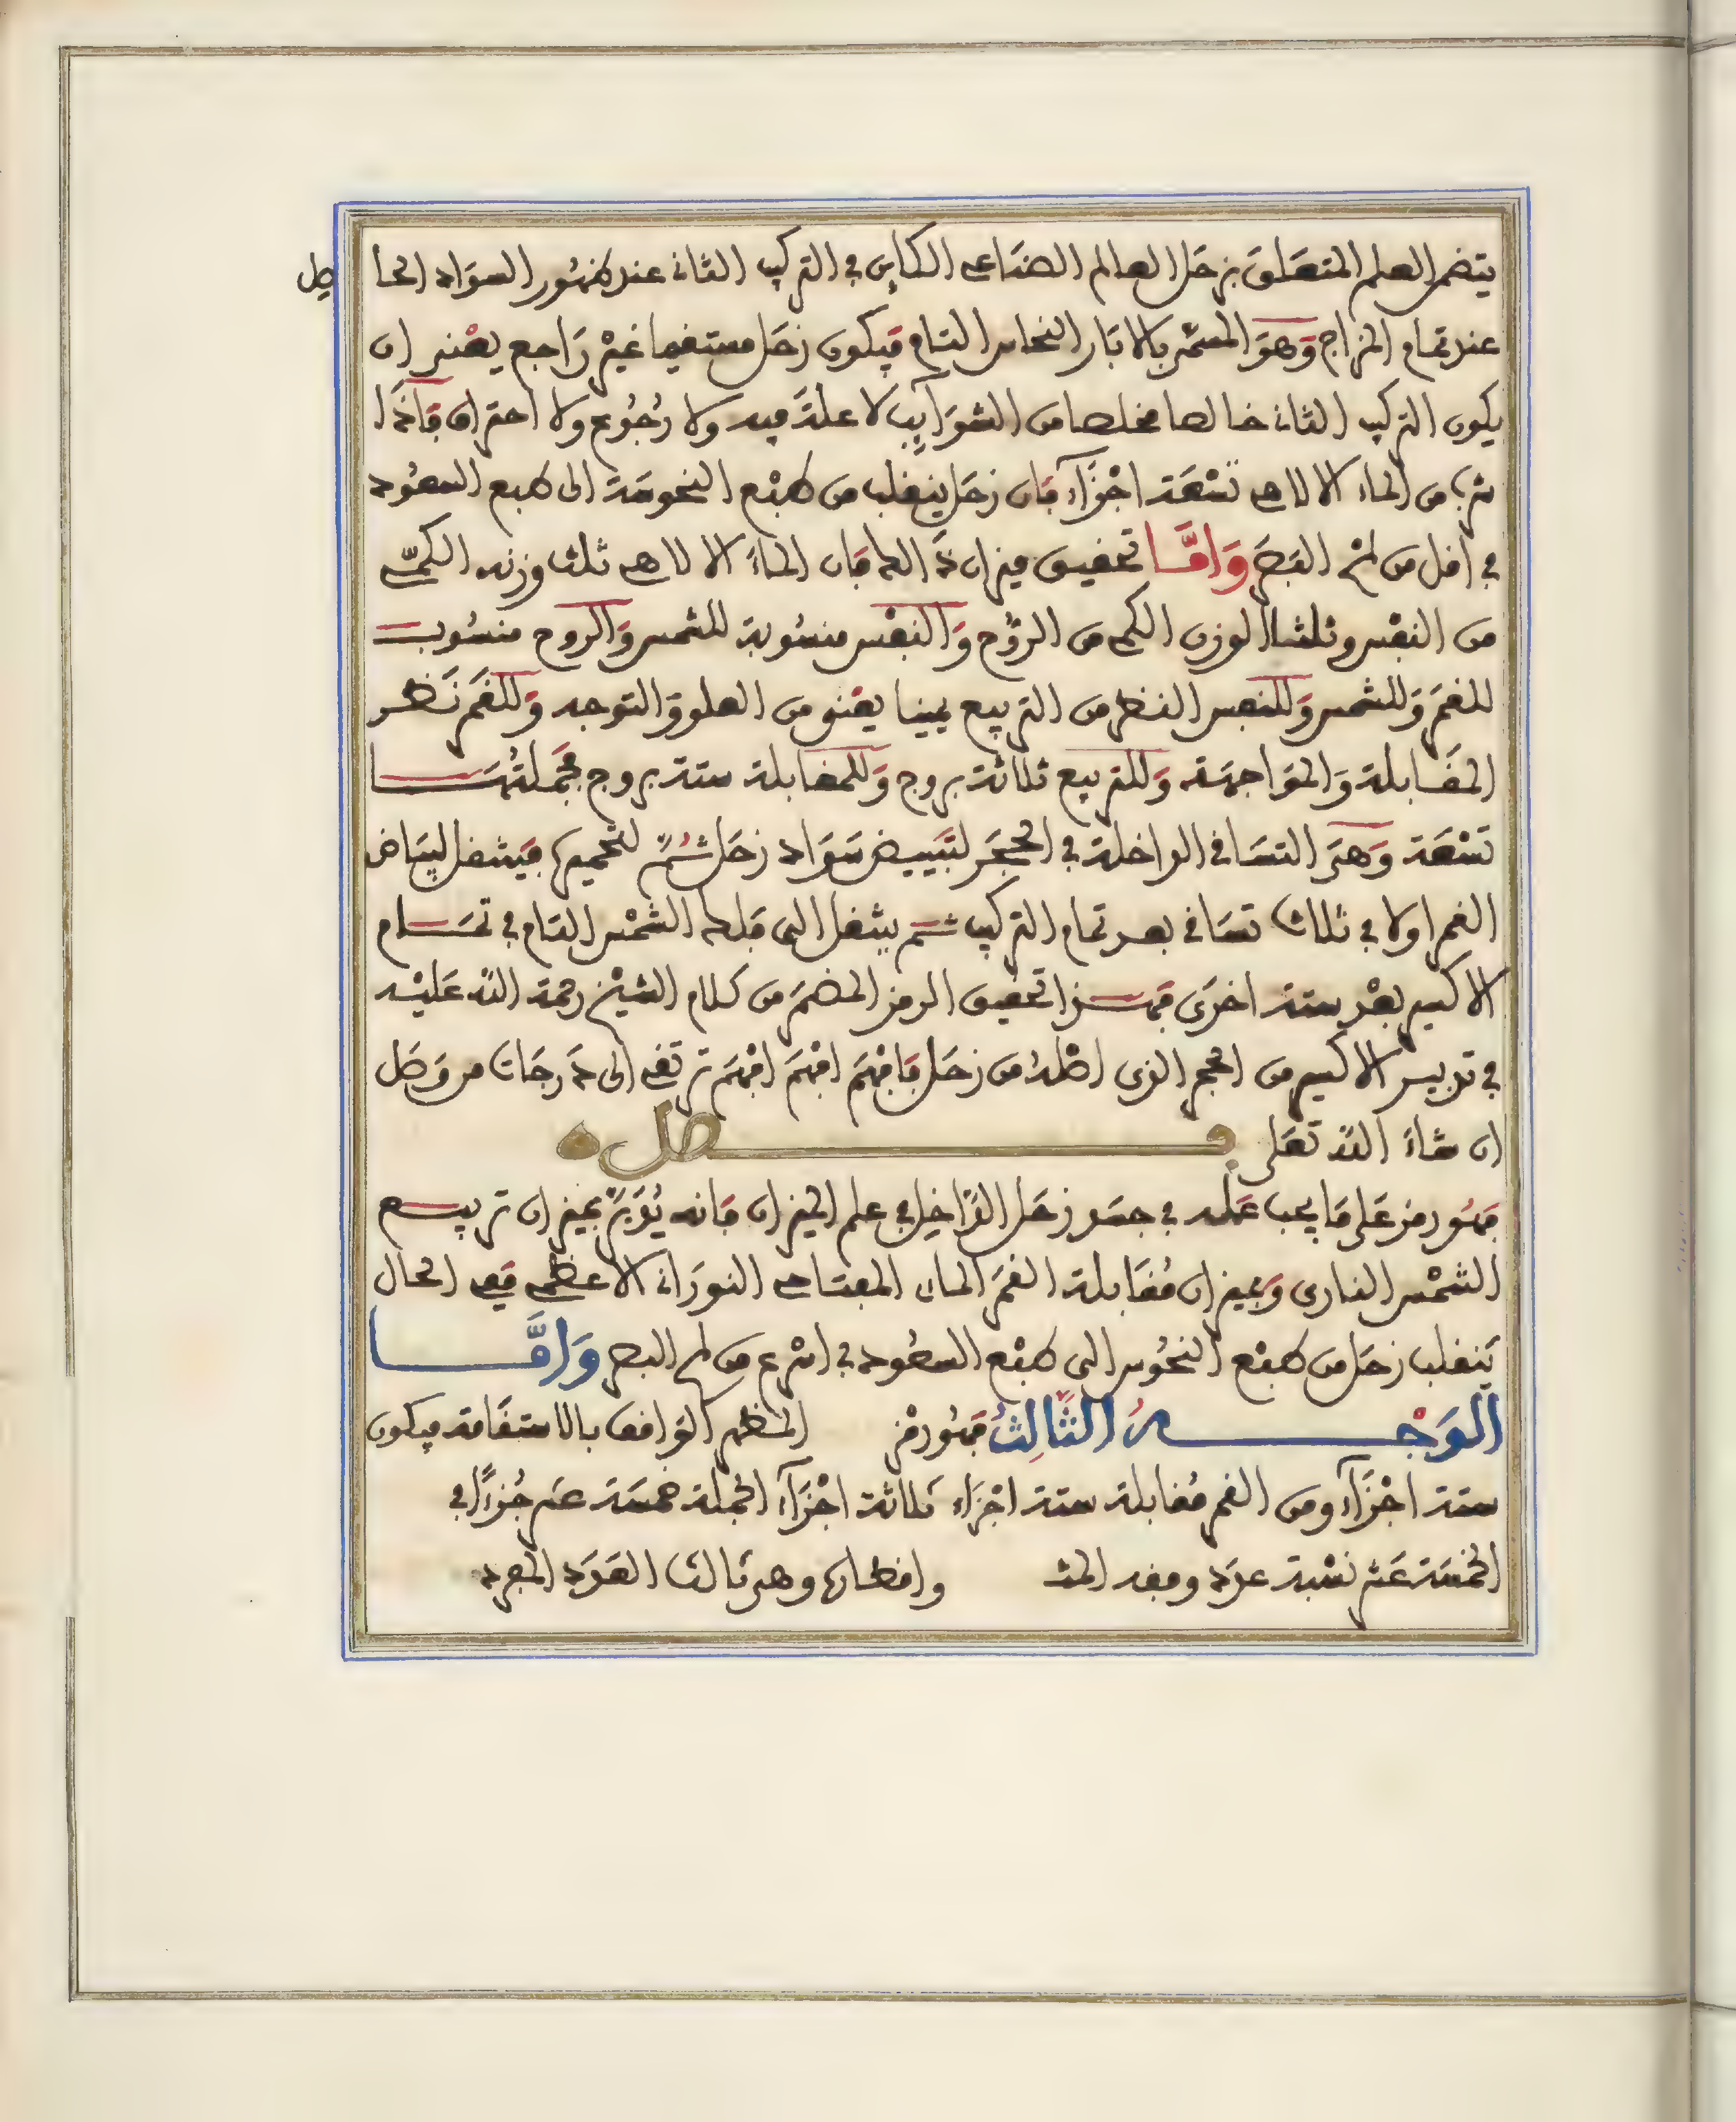 يتضمن العلم المتعلق بزحل العالم الصناعي الكاين في التركيب الثاني عند ظهور السواد الحا
صل
عند تمام المزاج وهو المسمى بالابار النحاس التام فيكون زحل مستقيما غير راجع يعني ان
يكون التركيب الثاني خالصا مخلصا من الشوآيب لا علة فيه ولا رجوع ولا احتراق فاذا
شرب من الماء الالاهي تسعة اجزآء فان زحل ينقلب من طبع النحوسة الى طبع السعود
في اقل من لمح البصر وامّا تحقيق ميزان ذا الماء فان الماء الالاهي ثلث وزنه الكمّي
من النفس وثلثا الوزن الكمي من الروح والنفس منسوبة للشمس والروح منسوب
للقمر وللشمس وللنفس النظر من التربيع يمينا يعني من العلو والتوجه وللقمر نظر
المقابلة والمواجهة وللتربيع ثلاثة بروج وللمقابلة ستة بروج فجملتها
تسعة وهي التساقي الداخلة في الحجر لتبييض سواد زحل ثم لتحميرها فينتقل لبياض
القمر اولا في ثلاث تساقي بعد تمام التركيب ثم ينتقل الى فلك الشمس التام في تمام
الاكسير بعد ستة اخرى فهذا تحقيق الرمز المضمر من كلام الشيخ رحمة الله عليه
في تدبير الاكسير من الحجر الذي اصله من زحل فافهم افهم افهم ترتقي الى درجات من وصل
ان شاء الله تعلى فصل
فهو رمز على ما يجب عمله في جسد زحل الداخل في علم الميزان فانه يؤبر بميزان تربيع
الشمس الناري وبميزان مقابلة القمر الماي المفتاحي النوراني الاعظم ففي الحال
ينقلب زحل من طبع النحوس الى طبع السعود في اسرع من لمح البصر وامّا
الوجه الثالث فهو رمز المظهر الواقع بالاستقامة فيكون
ستة اجزآء ومن القمر مقابلة ستة اجزاء ثلاثة اجزآء الجملة خمسة عشر جزءا في
الخمسة عشر نسبة عدد وفقه المث واقطارها وهي ثالث العدد المفرد